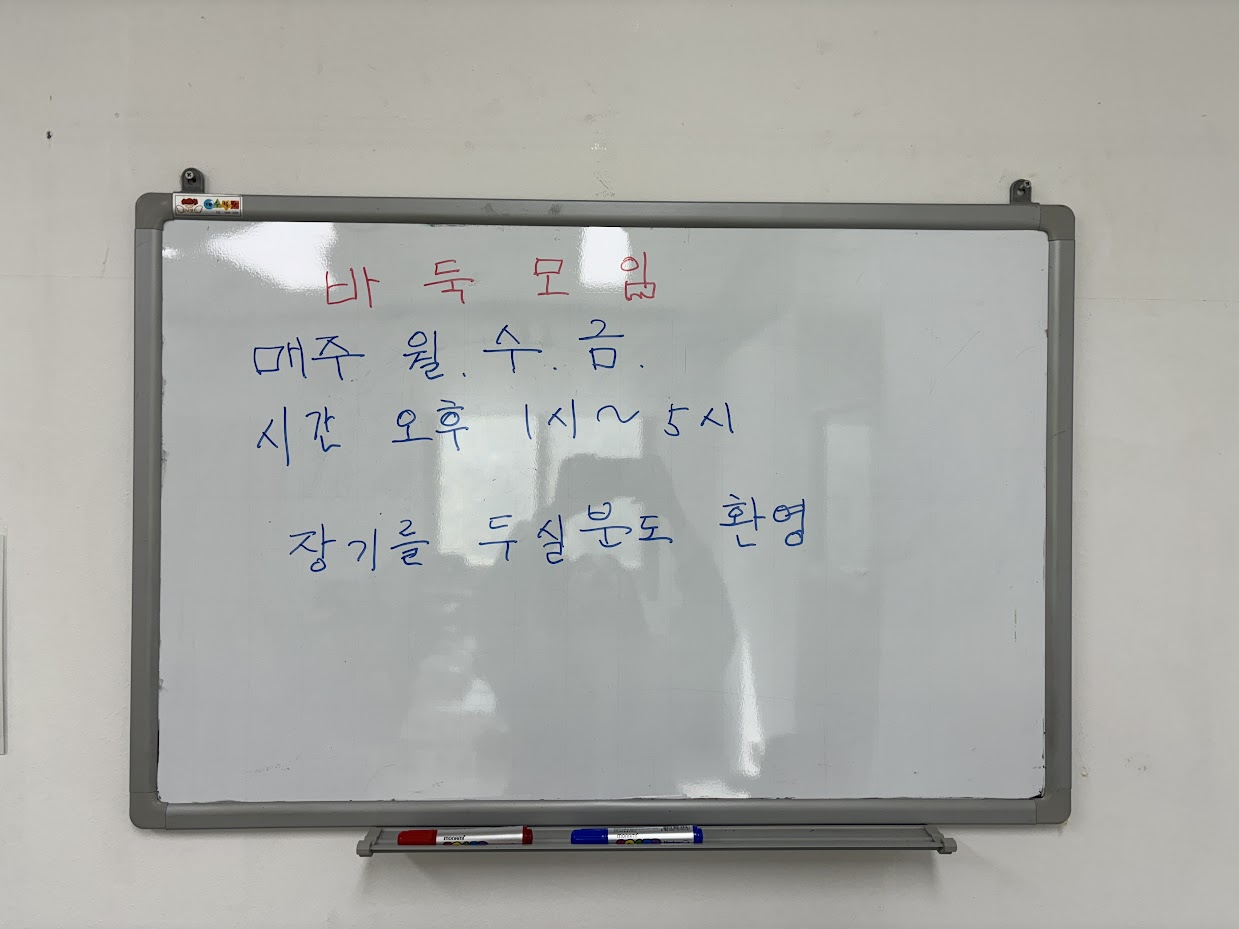 바 둑 모 임
매주 월. 수. 금.
시간 오후 1시~5시
장기를 두실분도 환영
monami